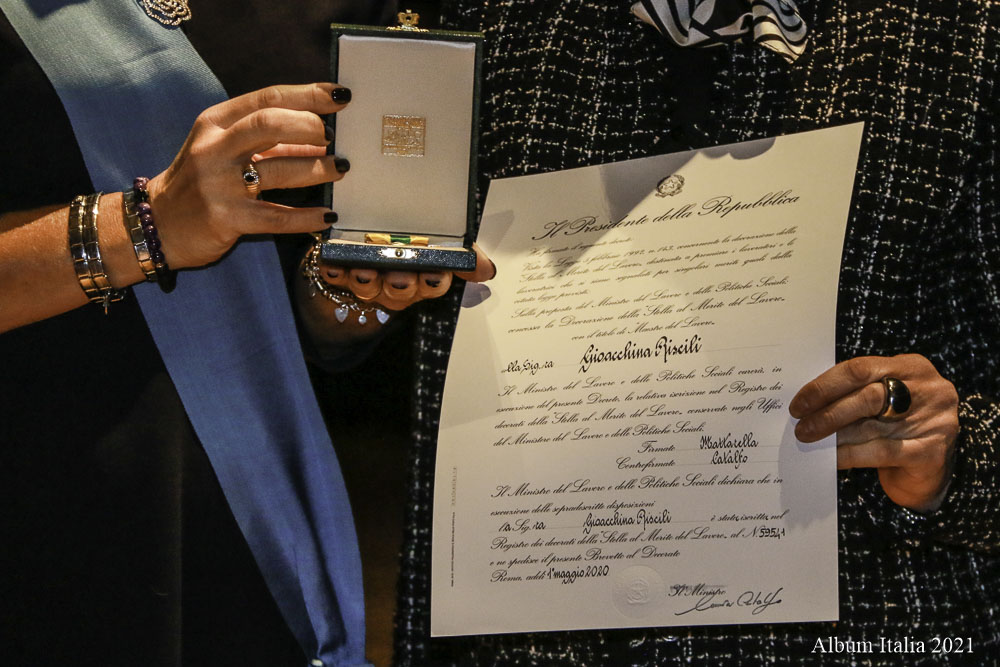 Il Presidente della Repubblica
Ha firmato il seguente decreto:
Vista la Legge 5 febbraio 1992, n. 143, concernente la decorazione della
Stella al Merito del Lavoro, destinata a premiare i lavoratori e le
lavoratrici che si siano segnalati per singolari meriti quali dalla
citata legge previsti;
Sulla proposta del Ministro del Lavoro e delle Politiche Sociali
concessa la Decorazione della "Stella al Merito del Lavoro"
con il titolo di "Maestro del Lavoro"
alla Sig.ra Gioacchina Riscili
Il Ministro del Lavoro e delle Politiche Sociali curerà, in
esecuzione del presente Decreto, la relativa iscrizione nel Registro dei
decorati della "Stella al Merito del Lavoro", conservato negli Uffici
del Ministro del Lavoro e delle Politiche Sociali.
Firmato Mattarella
Controfirmato Catalfo
Il Ministro del Lavoro e delle Politiche Sociali dichiara che in
esecuzione delle sopradescritte disposizioni
la Sig.ra Gioacchina Riscili è stata iscritta nel
Registro dei decorati della "Stella al Merito del Lavoro" al N. 59541
e ne spedisce il presente Brevetto al Decorato
Roma, addì 1° maggio 2020
Il Ministro
Album Italia 2021